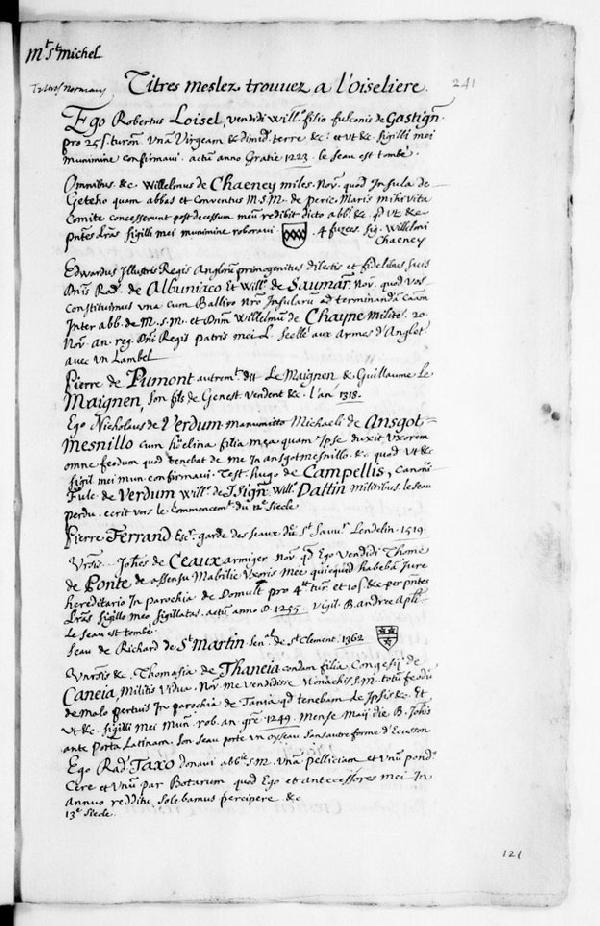 Mt St Michel
Titres meslez trouvez a l'oiseliere. 241
Ego Robertus Loisel, vendidi Will. filio fulconis de Gastign.
pro 25 s. turon. Vnã Virgeam & dimid. terre &c. et vt &c. sigilli mei
munimine confirmavi. actũ anno Gratie 1223. le seau est tombé.
Omnibus &c. Willelmus de Chaeney miles. Nov. quod Insula de
Geteho quam abbas et Conventus M.S.M. de peric. Maris mihi vita
comite concesserunt post decessum meũ redibit dicto abb. & p vt &c
pntes lrãs sigilli mei munimine roboravi. 4 fuzees. sig. Willelmi
Chaeney
Edwardus Illustris Regis Anglorũ primogenitus dilectis et fidelibus suis
Dnis Rad. de Albuniaco et Will. de Saumar. Nov. quod Vos
constituimus vna cum Ballivo Nrõ Insularũ ad terminandã Caãm
Inter abb. de M.S.M. et Dnm Willelmũ de Chayne Milite. 20
Nov. an. reg. Dñi Regis patris mei L. scellé aux Armes d'Anglet.
avec vn Lambel
Pierre de Pumont autremt. dit Le Maignen & Guillaume Le
Maignen, son fils de Genest vendent &c. l'an 1318.
Ego Nicholaus de Verdum manumitto Michaeli de Ansgot-
Mesnillo cum helina filia mea quam Ipse duxit Vxorem
omne feodum quod tenebat de me In ansgotmesnillo. &c. quod vt &c
sigil. mei mun. confirmavi. Test. Hugo de Campellis, Canoni.
Fulc. de Verdum Will. de S. Sign. Will. Daltin militibus. le seau
perdu. ecrit vers le Commencemt. du 12e Siecle
Pierre Ferrand Escr. garde des seaux du St Sauvr. Lendelin. 1519
Vrsis. Johes de Ceaux armiger Nov. qd Ego Vendidi Thome
de Ponte de assensu Mabilie Vxoris Mee quicquid habebã Jure
hereditario In parochia de Domult pro 4lt tur. et 10 s. &c per pntes
lrãs sigillo meo sigillatas. actũ anno D. 1255. Vigil. B. Andree Apli.
Le seau est tombé.
Seau de Richard de St Martin Senal. de St Clement. 1362
Vnrsis &c. Thomasia de Thaneia condam filia Congesij de
Caneia, Militis Vidue. Nov. me vendidisse Monachis S.M. totũ feodũ
de malo pertuis In parochia de Tania qd tenebam de Ipsis &c. Et
vt &c. sigilli Mei Mun. rob. an. gre. 1249. Mense Maij die B. Johis
ante Portã Latinam. Son seau porte vn oyseau sans autre forme d'Ecusson
Ego Rad. Taxo donavi abtie S.M. Vnã pelliciam et vnũ pondo
Cere et Vnũ par Botarum quod Ego et antecessores mei In
annuo redditu solebamus percipere &c
13e Siecle.
121